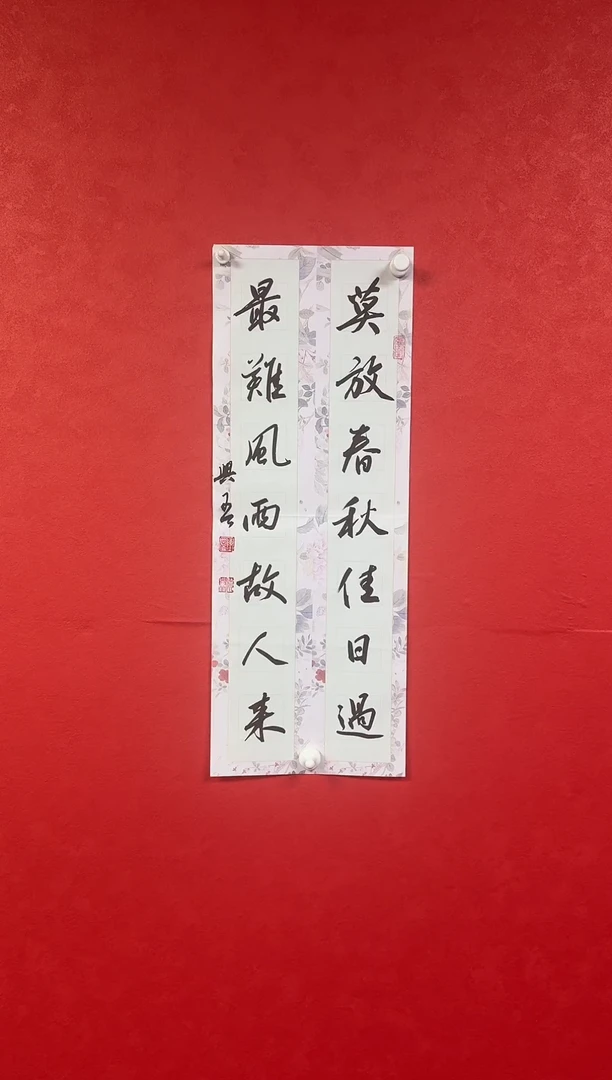 莫放春秋佳日過
最難風雨故人来
興吾